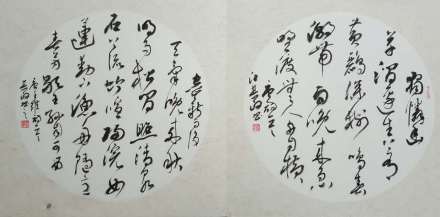 独怜幽
草涧边生上有
黄鹂深树鸣春
潮带雨晚来急
野渡无人舟自横
空山新雨后
天气晚来秋
明月松间照清泉
石上流竹喧归浣女
莲动下渔舟随意
春芳歇王孙自可留